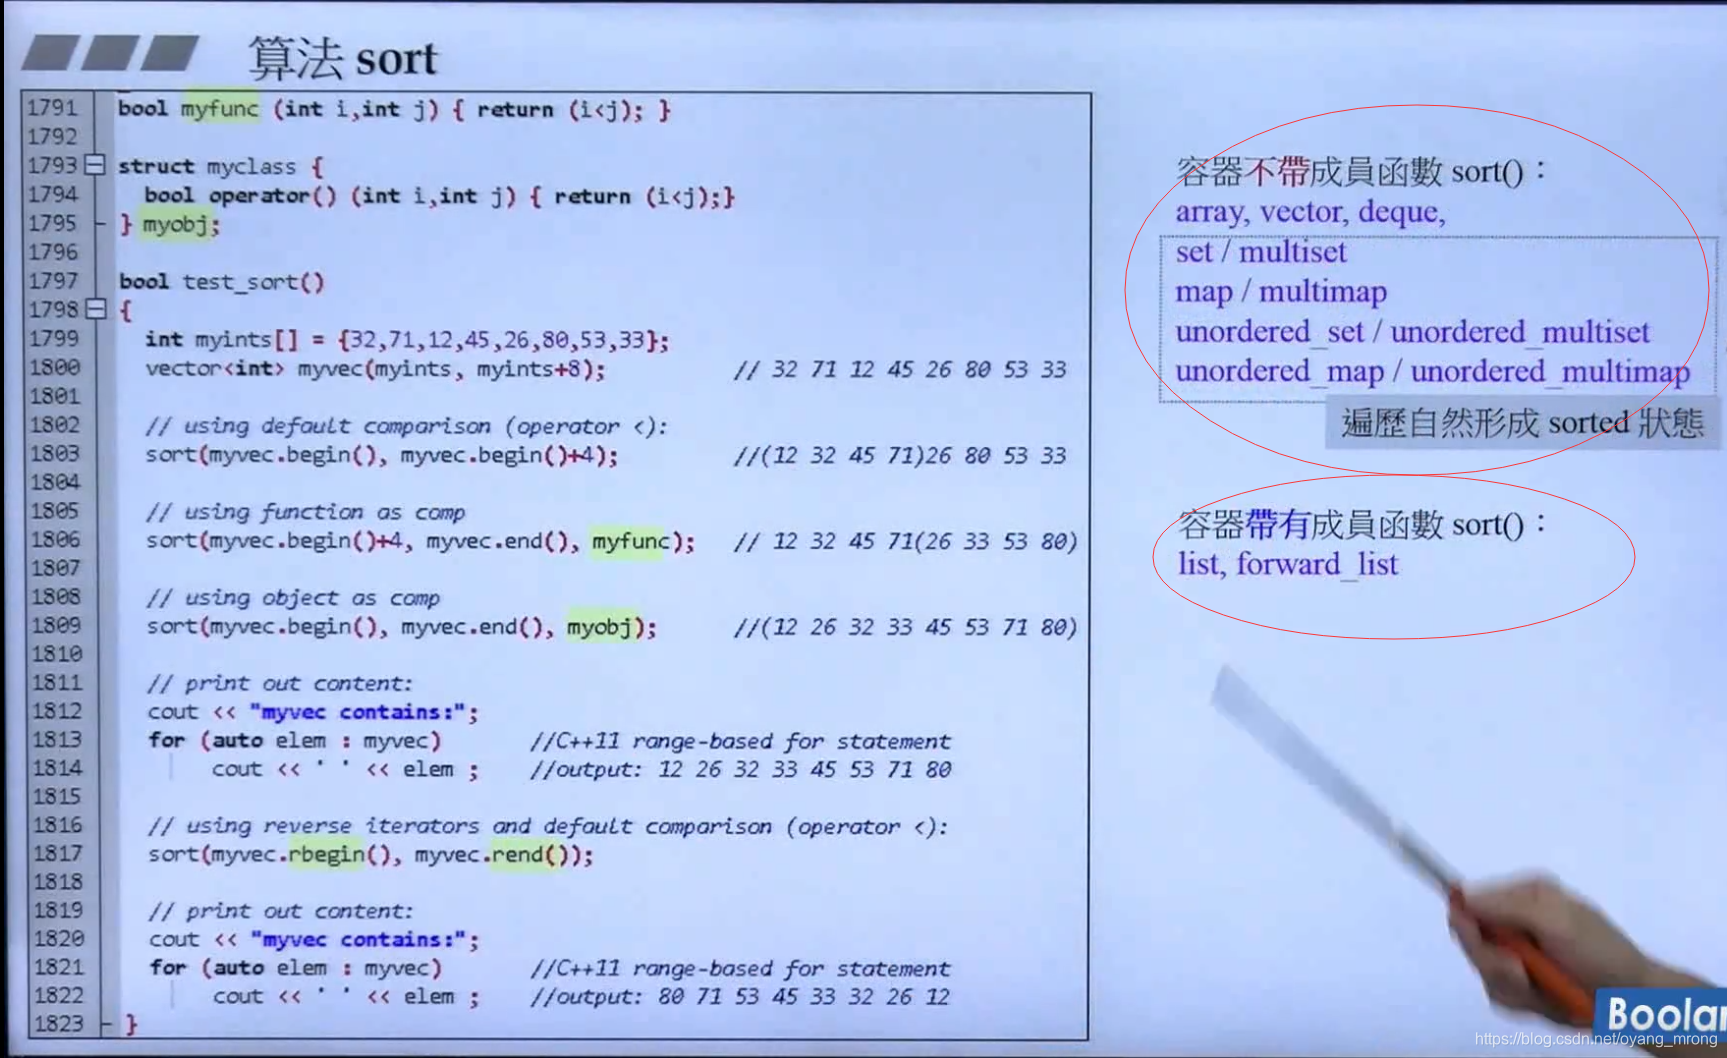 算法 sort
1791 bool myfunc (int i,int j) { return (i<j); }
1792
1793 struct myclass {
1794 bool operator() (int i,int j) { return (i<j);}
1795 } myobj;
1796
1797 bool test_sort()
1798 {
1799 int myints[] = {32,71,12,45,26,80,53,33};
1800 vector<int> myvec(myints, myints+8); // 32 71 12 45 26 80 53 33
1801
1802 // using default comparison (operator <):
1803 sort(myvec.begin(), myvec.begin()+4); //(12 32 45 71)26 80 53 33
1804
1805 // using function as comp
1806 sort(myvec.begin()+4, myvec.end(), myfunc); // 12 32 45 71(26 33 53 80)
1807
1808 // using object as comp
1809 sort(myvec.begin(), myvec.end(), myobj); //(12 26 32 33 45 53 71 80)
1810
1811 // print out content:
1812 cout << "myvec contains:";
1813 for (auto elem : myvec) //C++11 range-based for statement
1814 cout << ' ' << elem ; //output: 12 26 32 33 45 53 71 80
1815
1816 // using reverse iterators and default comparison (operator <):
1817 sort(myvec.rbegin(), myvec.rend());
1818
1819 // print out content:
1820 cout << "myvec contains:";
1821 for (auto elem : myvec) //C++11 range-based for statement
1822 cout << ' ' << elem ; //output: 80 71 53 45 33 32 26 12
1823 }
容器不帶成員函數 sort()：
array, vector, deque,
set / multiset
map / multimap
unordered_set / unordered_multiset
unordered_map / unordered_multimap
遍歷自然形成 sorted 狀態
容器帶有成員函數 sort()：
list, forward_list
Boolan
https://blog.csdn.net/oyang_mrong